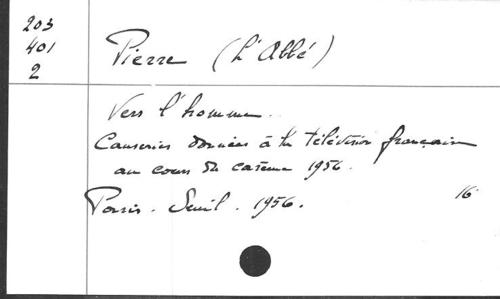 203
401
2
Pierre (L'Abbé)
Vers l'homme.
Causeries données à la télévision française
au cours du carême 1956.
Paris. Seuil. 1956. 16